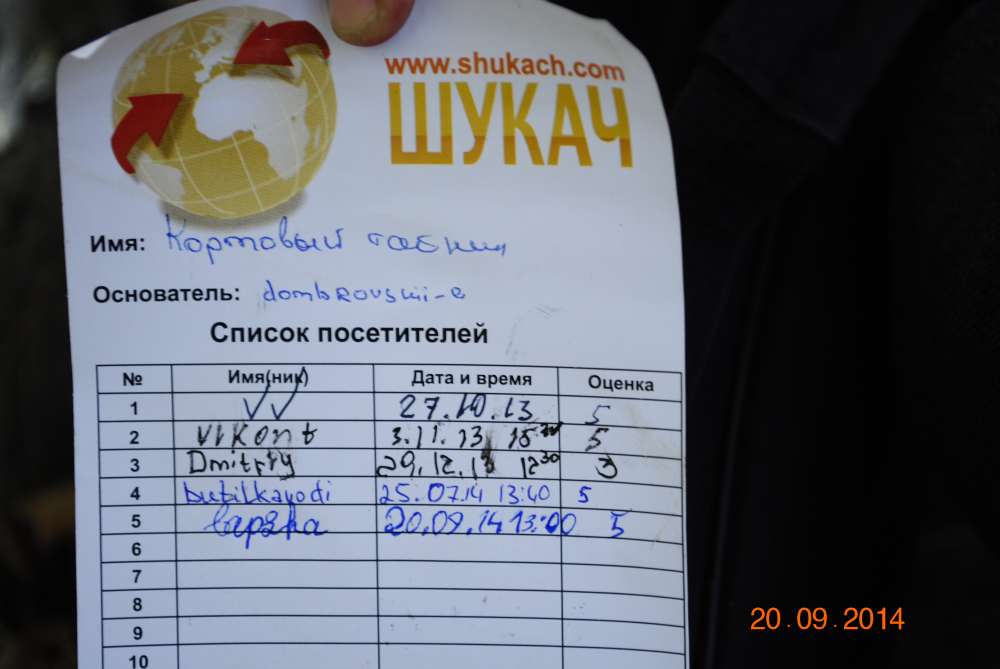 www.shukach.com
ШУКАЧ
Имя: Кортовый
Основатель: dombrovskii-e
Список посетителей
№ Имя(ник) Дата и время Оценка
1 VV 27.10.13 5
2 Vikont 3.11.13 15 5
3 Dmitriy 29.12.13 12 30 3
4 butilkavodi 25.07.14 13:40 5
5 20.09.14 13:00 5
6
7
8
9
10
20.09.2014